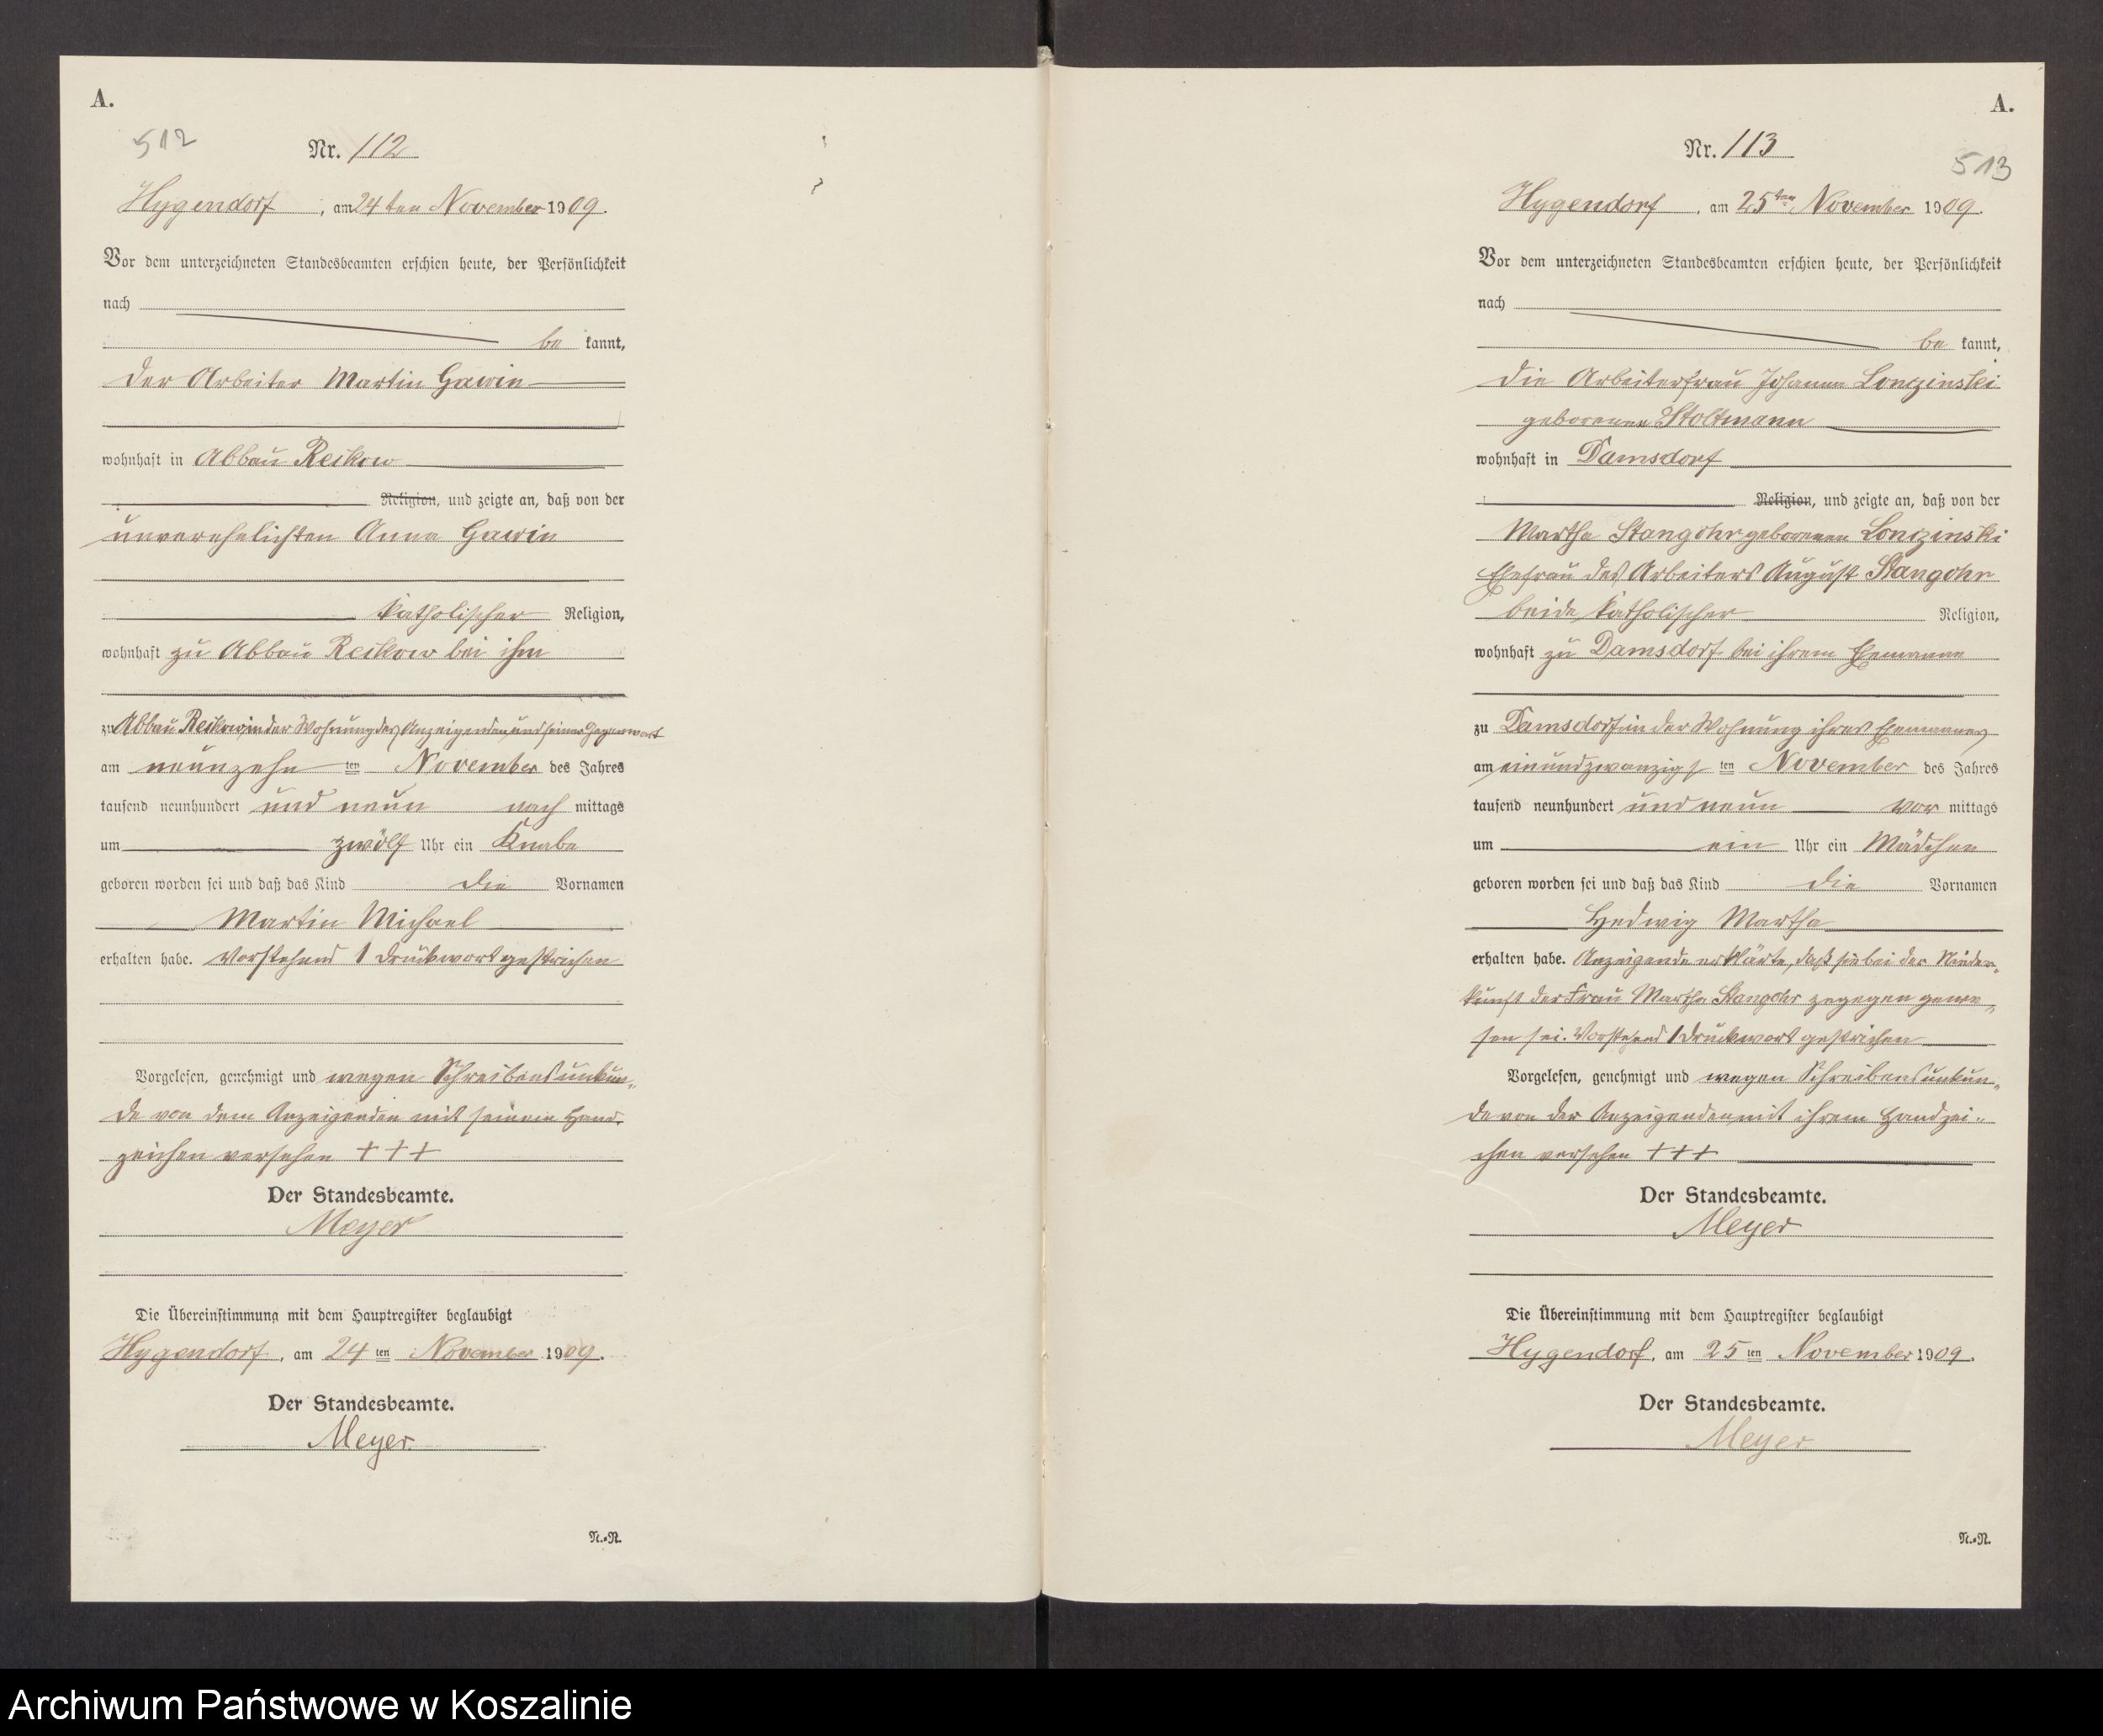 A.
512
Nr. 112
Hygendorf, am 24ten November 1909.
Vor dem unterzeichneten Standesbeamten erschien heute, der Persönlichkeit
nach
be kannt,
der Arbeiter Martin Gawin
wohnhaft in Abbau Reckow
Religion, und zeigte an, daß von der
unverehelichten Anna Gawin
katholischer Religion,
wohnhaft zu Abbau Reckow bei ihm
zu Abbau Reckow in der Wohnung des Anzeigenden und seiner Gegenwart
am neunzehn ten November des Jahres
tausend neunhundert und neun nach mittags
um zwölf Uhr ein Knabe
geboren worden sei und daß das Kind die Vornamen
Martin Michael
erhalten habe. Vorstehend 1 Druckwort gestrichen
Vorgelesen, genehmigt und wegen Schreibensunkun-
de von dem Anzeigenden mit seinem Hand-
zeichen versehen +++
Der Standesbeamte.
Meyer
Die Übereinstimmung mit dem Hauptregister beglaubigt
Hygendorf, am 24 ten November 1909.
Der Standesbeamte.
Meyer.
N.=R.
A.
Nr. 113
513
Hygendorf, am 25ten November 1909.
Vor dem unterzeichneten Standesbeamten erschien heute, der Persönlichkeit
nach
be kannt,
die Arbeiterfrau Johanna Lonczinski
geborenen Stoltmann
wohnhaft in Damsdorf
Religion, und zeigte an, daß von der
Martha Stangohr geborenen Lonczinski
Ehefrau des Arbeiters August Stangohr
beide katholischer Religion,
wohnhaft zu Damsdorf bei ihrem Ehemanne
zu Damsdorf in der Wohnung ihres Ehemannes
am einundzwanzigs ten November des Jahres
tausend neunhundert und neun vor mittags
um ein Uhr ein Mädchen
geboren worden sei und daß das Kind die Vornamen
Hedwig Martha
erhalten habe. Anzeigende erklärte, daß sie bei der Nieder-
kunft der Frau Martha Stangohr zugegen gewe-
sen sei. Vorstehend 1 Druckwort gestrichen
Vorgelesen, genehmigt und wegen Schreibensunkun-
de von der Anzeigenden mit ihrem Handzei-
chen versehen +++
Der Standesbeamte.
Meyer
Die Übereinstimmung mit dem Hauptregister beglaubigt
Hygendorf, am 25 ten November 1909.
Der Standesbeamte.
Meyer
N.=R.
Archiwum Państwowe w Koszalinie